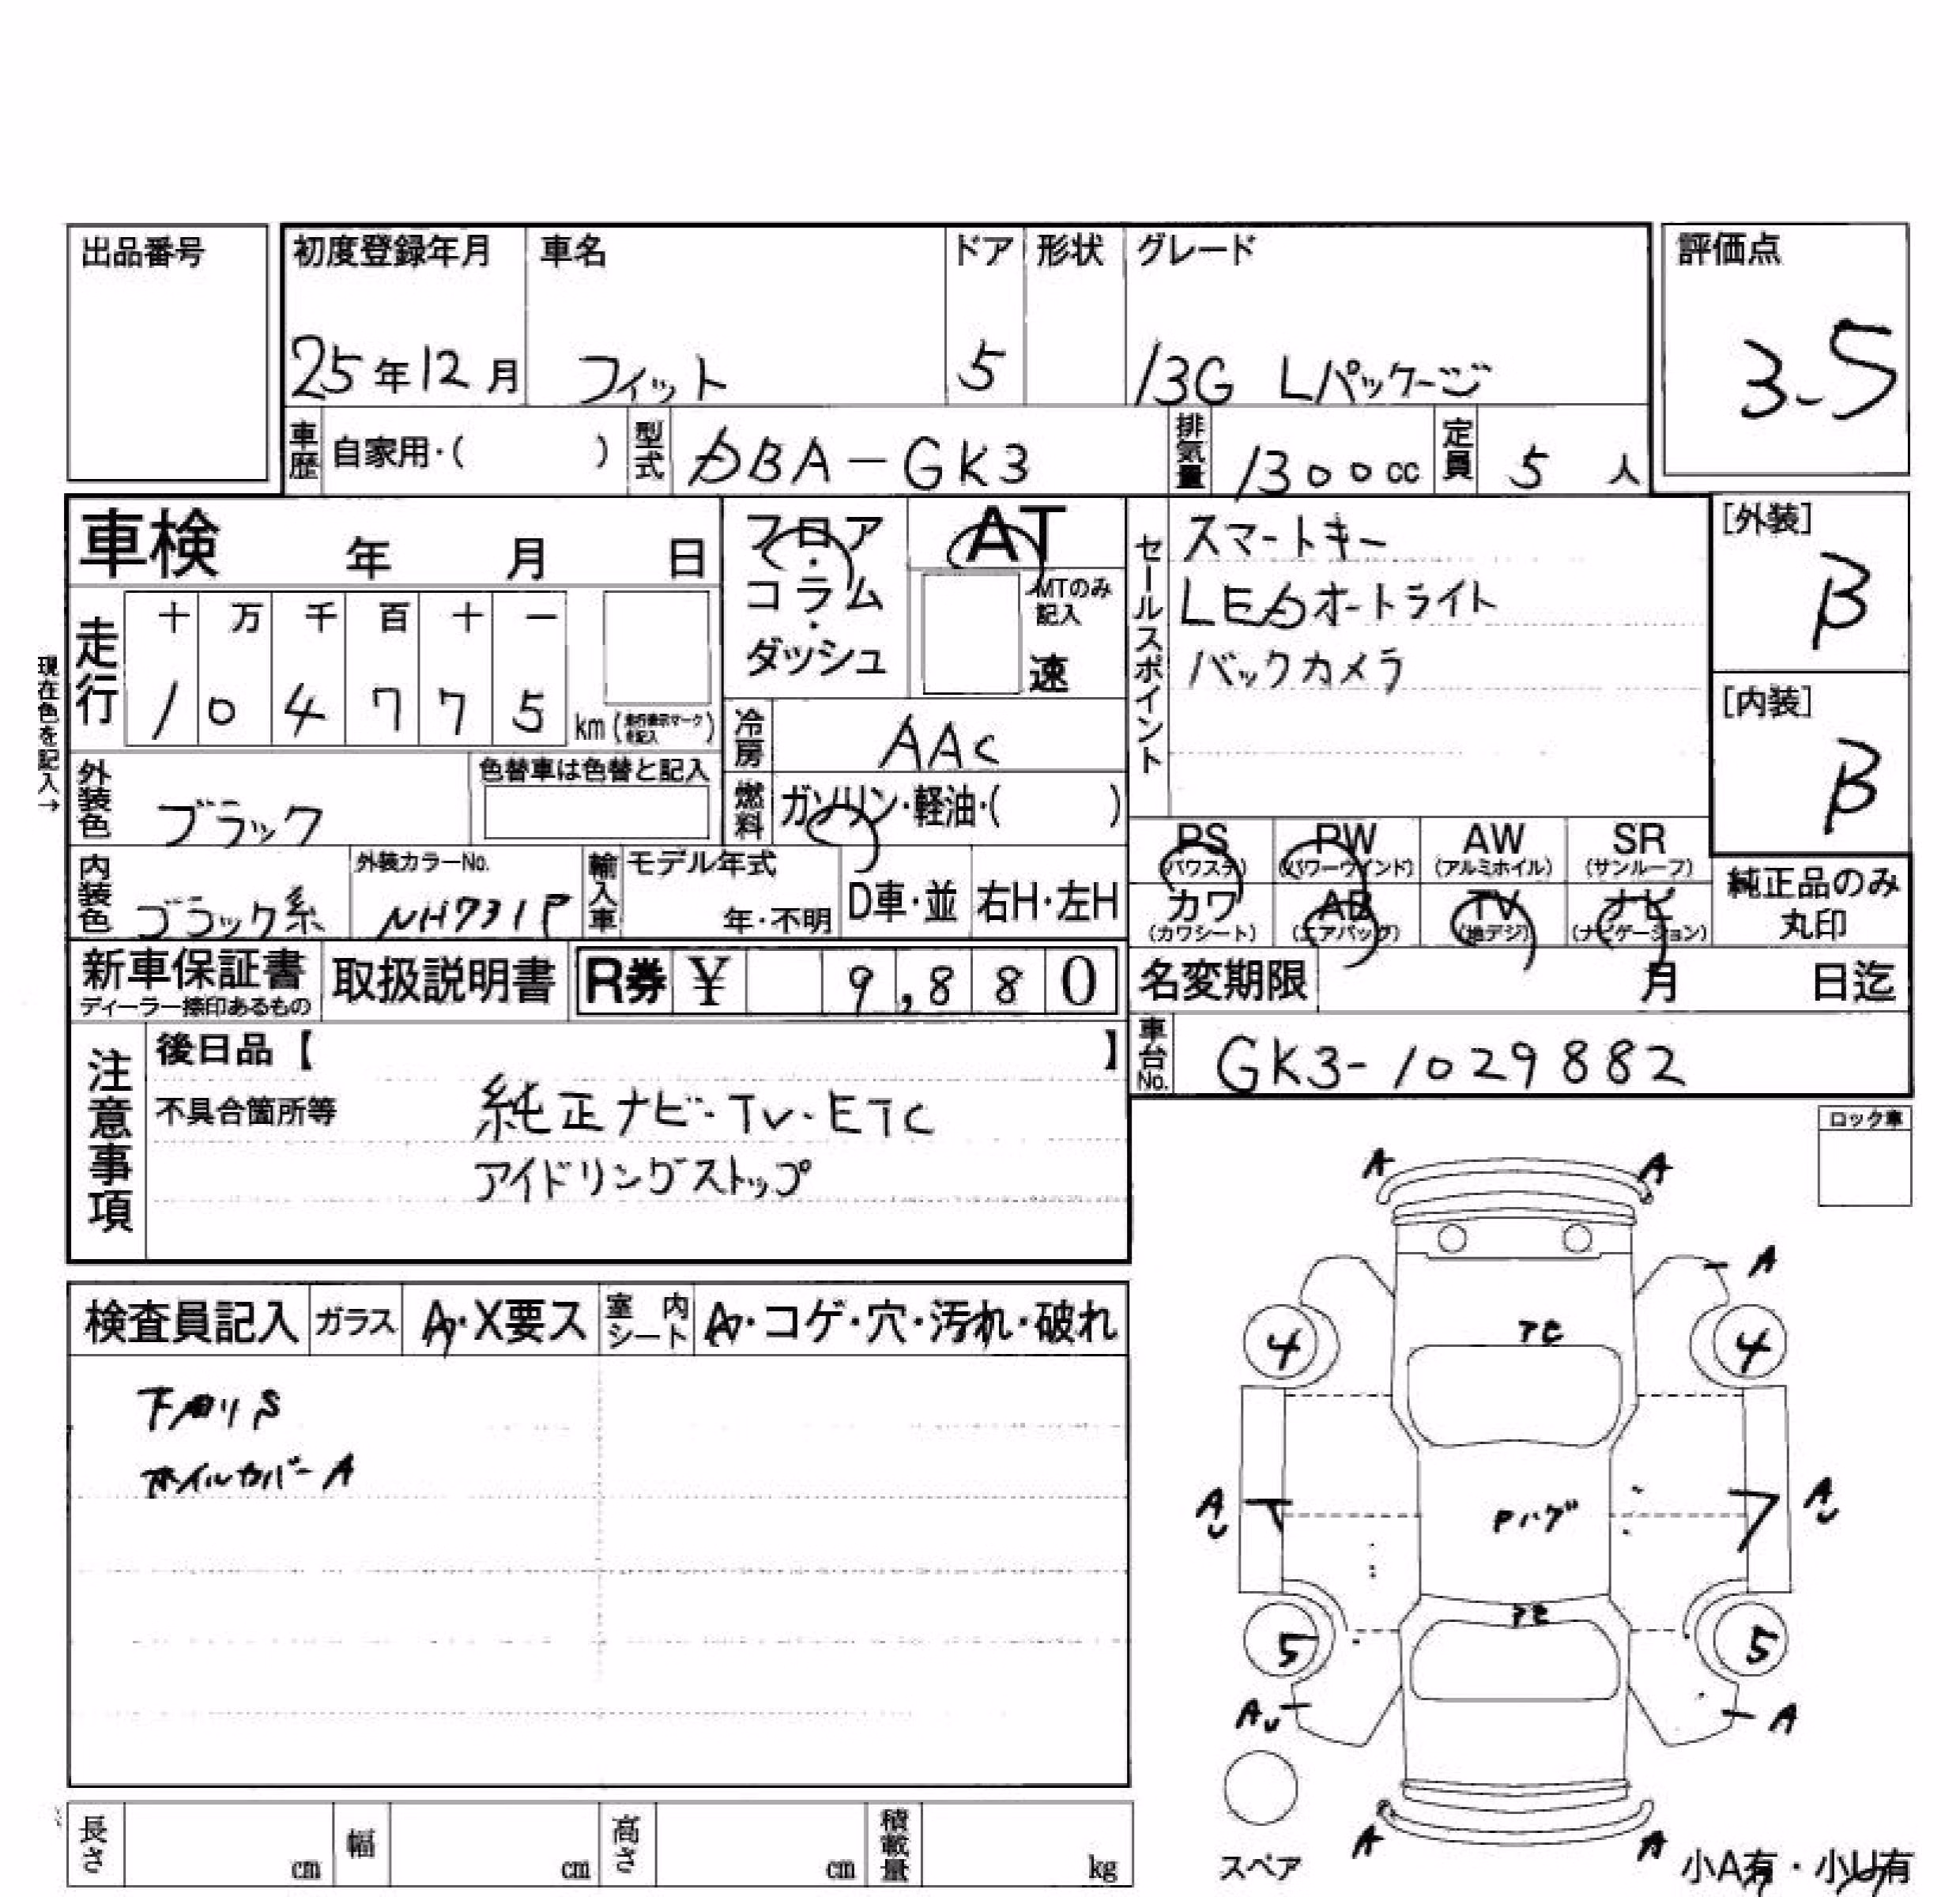 出品番号
初度登録年月 車名 ドア 形状 グレード 評価点
25年12月 フィット 5 13G Lパッケージ 3.5
車歴 自家用・( ) 型式 DBA-GK3 排気量 1300cc 定員 5 人
車検 年 月 日
フロア・コラム・ダッシュ
AT
MTのみ記入
速
セールスポイント
スマートキー
LEDオートライト
バックカメラ
[外装]
B
[内装]
B
現在色を記入→
走行 十 万 千 百 十 一
1 0 4 7 7 5 km (走行表示マークを記入)
冷房 AAC
外装色 ブラック 色替車は色替と記入
燃料 ガソリン・軽油・( )
PS (パワステ) PW (パワーウインド) AW (アルミホイル) SR (サンルーフ)
カワ (カワシート) AB (エアバッグ) TV (地デジ) ナビ (ナビゲーション)
純正品のみ丸印
内装色 ブラック系 外装カラーNo. NH731P 輸入車 モデル年式 年・不明 D車・並 右H・左H
新車保証書 ディーラー捺印あるもの 取扱説明書 R券 ¥ 9,880
名変期限 月 日迄
車台No. GK3-1029882
注意事項
後日品【 】
不具合箇所等 純正ナビ・TV・ETC
アイドリングストップ
ロック車
検査員記入 ガラス A・X要ス 室内シート A・コゲ・穴・汚れ・破れ
下廻りS
ホイルカバーA
A A
A
4 4
アE
AU AU
Pハゲ
アE
5 5
AU A
A A
スペア
小A有・小U有
長さ cm 幅 cm 高さ cm 積載量 kg